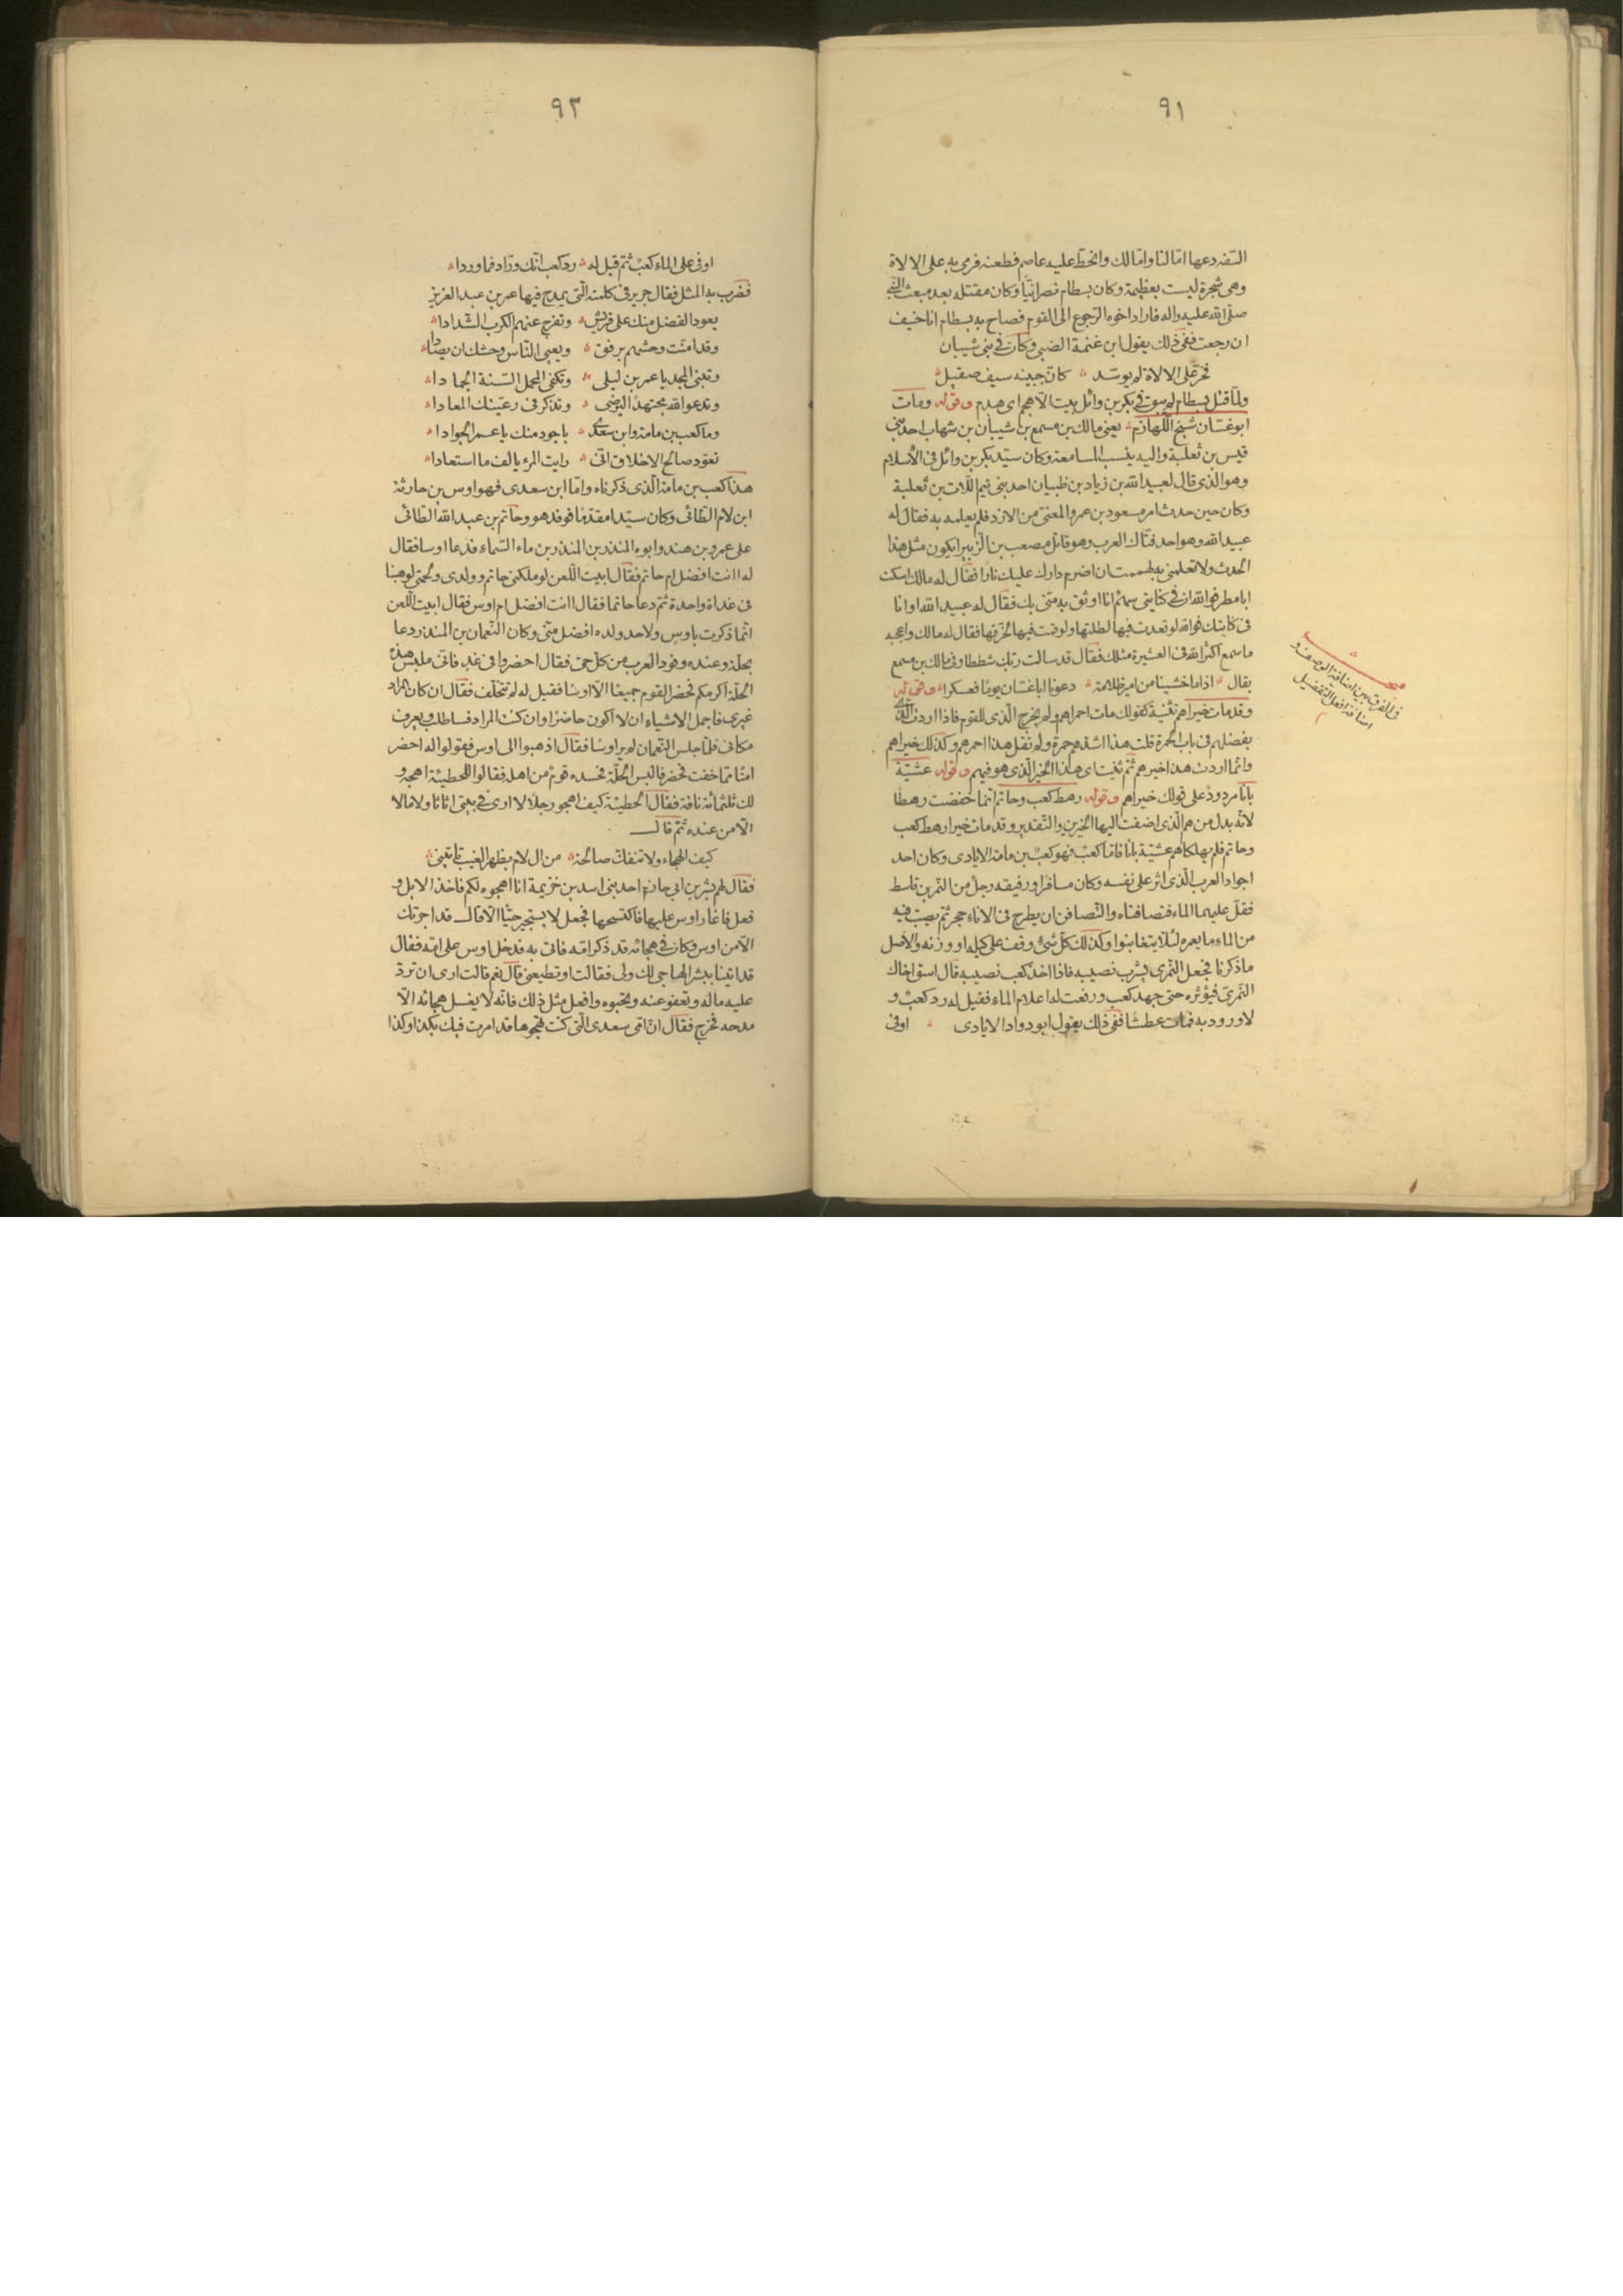 ٩١
السفه دعها امّا لنا وامّا لك وانحطّ عليه عاصم فطعنه فرمى به على الالاة
وهى شجرة ليست بعظيمة وكان بسطام نصرانيّا وكان مقتله بعد مبعث النبى
صلّى الله عليه واله فاراد اخوه الرّجوع الى القوم فصاح به بسطام انا حنيف
ان رجعت ففى ذلك يقول ابن عنمة الضبى وكان فى بنى شيبان
فخرّ على الالاة لم يوسّد كانّ جبينه سيف صقيل
ولمّا قتل بسطام لم يبق فى بكر بن وائل بيت الّا هجم اى هدم وقوله ومات
ابو غسّان شيخ اللّهازم يعنى مالك بن مسمع بن شيبان بن شهاب احد بنى
قيس بن ثعلبة واليه ينسب المسامعة وكان سيّد بكر بن وائل فى الاسلام
وهو الذى قال لعبيد الله بن زياد بن ظبيان احد بنى تيم اللّات بن ثعلبة
وكان حين حدث امر مسعود بن عمرو المعنىّ من الازد فلم يعلمه به فقال له
عبيد الله وهو احد فتّاك العرب وهو قاتل مصعب بن الزّبير ايكون مثل هذا
الحدث ولا تعلمنى به لهممت ان اضرم دارك عليك نارا فقال له مالك اسكت
ابا مطر فوالله ان فى كنانتى سهم انا اوثق به منّى بك فقال له عبيد الله او انا
فى كنانتك فوالله لو قعدت فيها لطلتها ولو قمت فيها لخرقتها فقال له مالك واعجبه
ما سمع اكثر الله فى العشيرة مثلك فقال قد سالت ربّك شططا وفى مالك بن مسمع
يقال اذا ما خشينا من امير ظلامة دعونا ابا غسّان يوما فعسكرا وقوله
وقد مات خيراهم تثنية كقولك مات احمراهم ولم يخرج الذى للقوم فاذا اردت الذى
يفضلهم فى باب الحمرة قلت هذا اشدهم حمرة ولم تقل هذا احمرهم وكذلك خيراهم
وانّما اردت هذا خيرهم ثمّ ثنيت اى هذا الخير الّذى هو فيهم وقوله عشيّة
بانا مردود على قولك خيراهم وقوله رهط كعب وحاتم انّما خفضت رهطا
لانّه بدل من هم الّذى اضفت اليها الخيرين والتّقدير وقد مات خيرا رهط كعب
وحاتم فلم يهلكاهم عشيّة بانا فامّا كعب فهو كعب بن مامة الايادى وكان احد
اجواد العرب الّذى اثر على نفسه وكان مسافرا ورفيقه رجل من النّمر بن قاسط
فقلّ عليهما الماء فتصافناه والتّصافن ان يطرح فى الاناء حجر ثمّ يصبّ فيه
من الماء ما يغمره لئلّا يتغابنوا وكذلك كلّ شىء وقف على كيله او وزنه والاصل
ما ذكرنا فجعل النّمرى يشرب نصيبه فاذا اخذ كعب نصيبه قال اسق اخاك
النّمرىّ فيؤثره حتى جهد كعب ورفعت له اعلام الماء فقيل له رد كعب و
لا ورود به فمات عطشا ففى ذلك يقول ابو دواد الايادى
اوفى
فى الفرق بين اضافة الوصف و
اضافة افعل التفضيل
٩٢
اوفى على الماء كعب ثمّ قيل له رد كعب انّك ورّاد فما وردا
فضرب به المثل فقال جرير فى كلمته الّتى يمدح فيها عمر بن عبد العزيز
يعود الفضل منك على قريش وتفرج عنهم الكرب الشّدادا
وقد امنت وحشهم برفق ويعيى النّاس وحشك ان يصادا
وتبنى المجد يا عمر بن ليلى وتكفى الممحل السّنة الجمادا
وتدعو الله مجتهدا ليرضى وتذكر فى رعيّتك المعادا
وما كعب بن مامة وابن سعدى باجود منك يا عمر الجوادا
تعوّد صالح الاخلاق انّى رايت المرء يالف ما استعادا
هذا كعب بن مامة الّذى ذكرناه وامّا ابن سعدى فهو اوس بن حارثة
ابن لام الطّائى وكان سيّدا مقدّما فوفد هو وحاتم بن عبد الله الطّائى
على عمرو بن هند وابوه المنذر بن المنذر بن ماء السّماء فدعا اوسا فقال
له اانت افضل ام حاتم فقال ابيت اللّعن لو ملكنى حاتم وولدى ولحمتى لوهبنا
فى غداة واحدة ثمّ دعا حاتما فقال اانت افضل ام اوس فقال ابيت اللّعن
انّما ذكرت باوس ولاحد ولده افضل منّى وكان النّعمان بن المنذر دعا
بحلّة وعنده وفود العرب من كلّ حىّ فقال احضروا فى غد فانّى ملبس هذه
الحلّة اكرمكم فحضر القوم جميعا الّا اوسا فقيل له لم تتخلّف فقال ان كان المراد
غيرى فاجمل الاشياء ان لا اكون حاضرا وان كنت المراد فساطلب ويعرف
مكانى فلمّا جلس النّعمان لم ير اوسا فقال اذهبوا الى اوس فقولوا له احضر
امنا ممّا خفت فحضر فالبس الحلّة فحسده قوم من اهله فقالوا للحطيئة اهجه و
لك ثلثمائة ناقة فقال الحطيئة كيف اهجو رجلا لا ارى فى بيتى اثاثا ولا مالا
الّا من عنده ثمّ قال
كيف الهجاء ولا تنفكّ صالحة من ال لام بظهر الغيب تاتينى
فقال لهم بشر بن ابى حازم احد بنى اسد بن خزيمة انا اهجوه لكم فاخذ الابل و
فعل فاغار اوس عليها فاكتسحها فجعل لا يستجير حيّا الّا قال قد اجرتك
الّا من اوس وكان فى هجائه قد ذكر امّه فاتى به فدخل اوس على امّه فقال
قد اتينا ببشر الهاجى لك ولى فقالت او تطيعنى قال نعم قالت ارى ان تردّ
عليه ماله وتعفو عنه وتحبوه وافعل مثل ذلك فانّه لا يغسل هجائه الّا
مدحه فخرج فقال انّ امّى سعدى الّتى كنت تهجوها قد امرت فيك بكذا وكذا